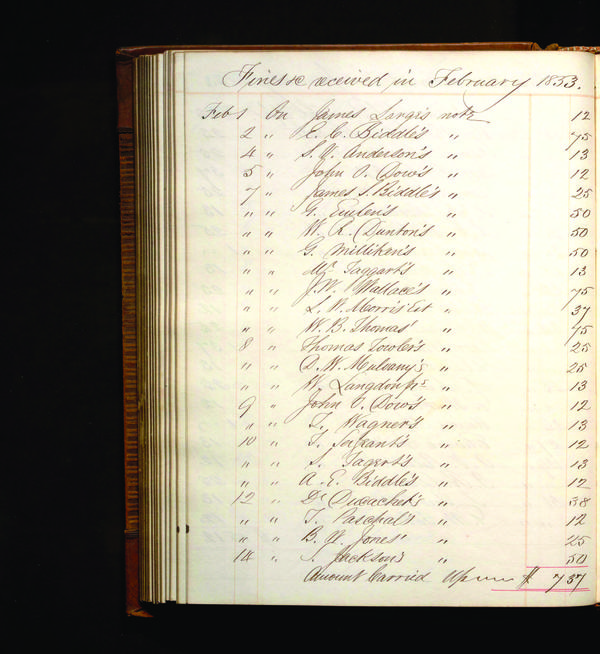 Fines &c received in February 1853.
Feb 1 On James Lang's note 12
2 " E. C. Biddle's " 75
4 " S. V. Anderson's " 13
5 " John O. Dow's " 12
7 " James S. Biddle's " 25
" " G. Euler's " 50
" " W. R. Dunton's " 50
" " G. Milliken's " 50
" " Mr. Taggart's " 13
" " J. W. Wallace's " 75
" " L. W. Morris' Est " 37
" " W. B. Thomas' " 75
8 " Thomas Fowler's " 25
" " D. W. Mulvany's " 25
" " W. Langdon " 13
9 " John O. Dow's " 12
" " T. Wagner's " 13
10 " T. " 12
" " S. Tagert's " 13
" " A. E. Biddle's " 12
12 " Dr Duhachet's " 38
" " T. Paschal's " 12
" " B. W. Jones' " 25
14 " S. Jackson's 50
Amount Carried $ 7 37